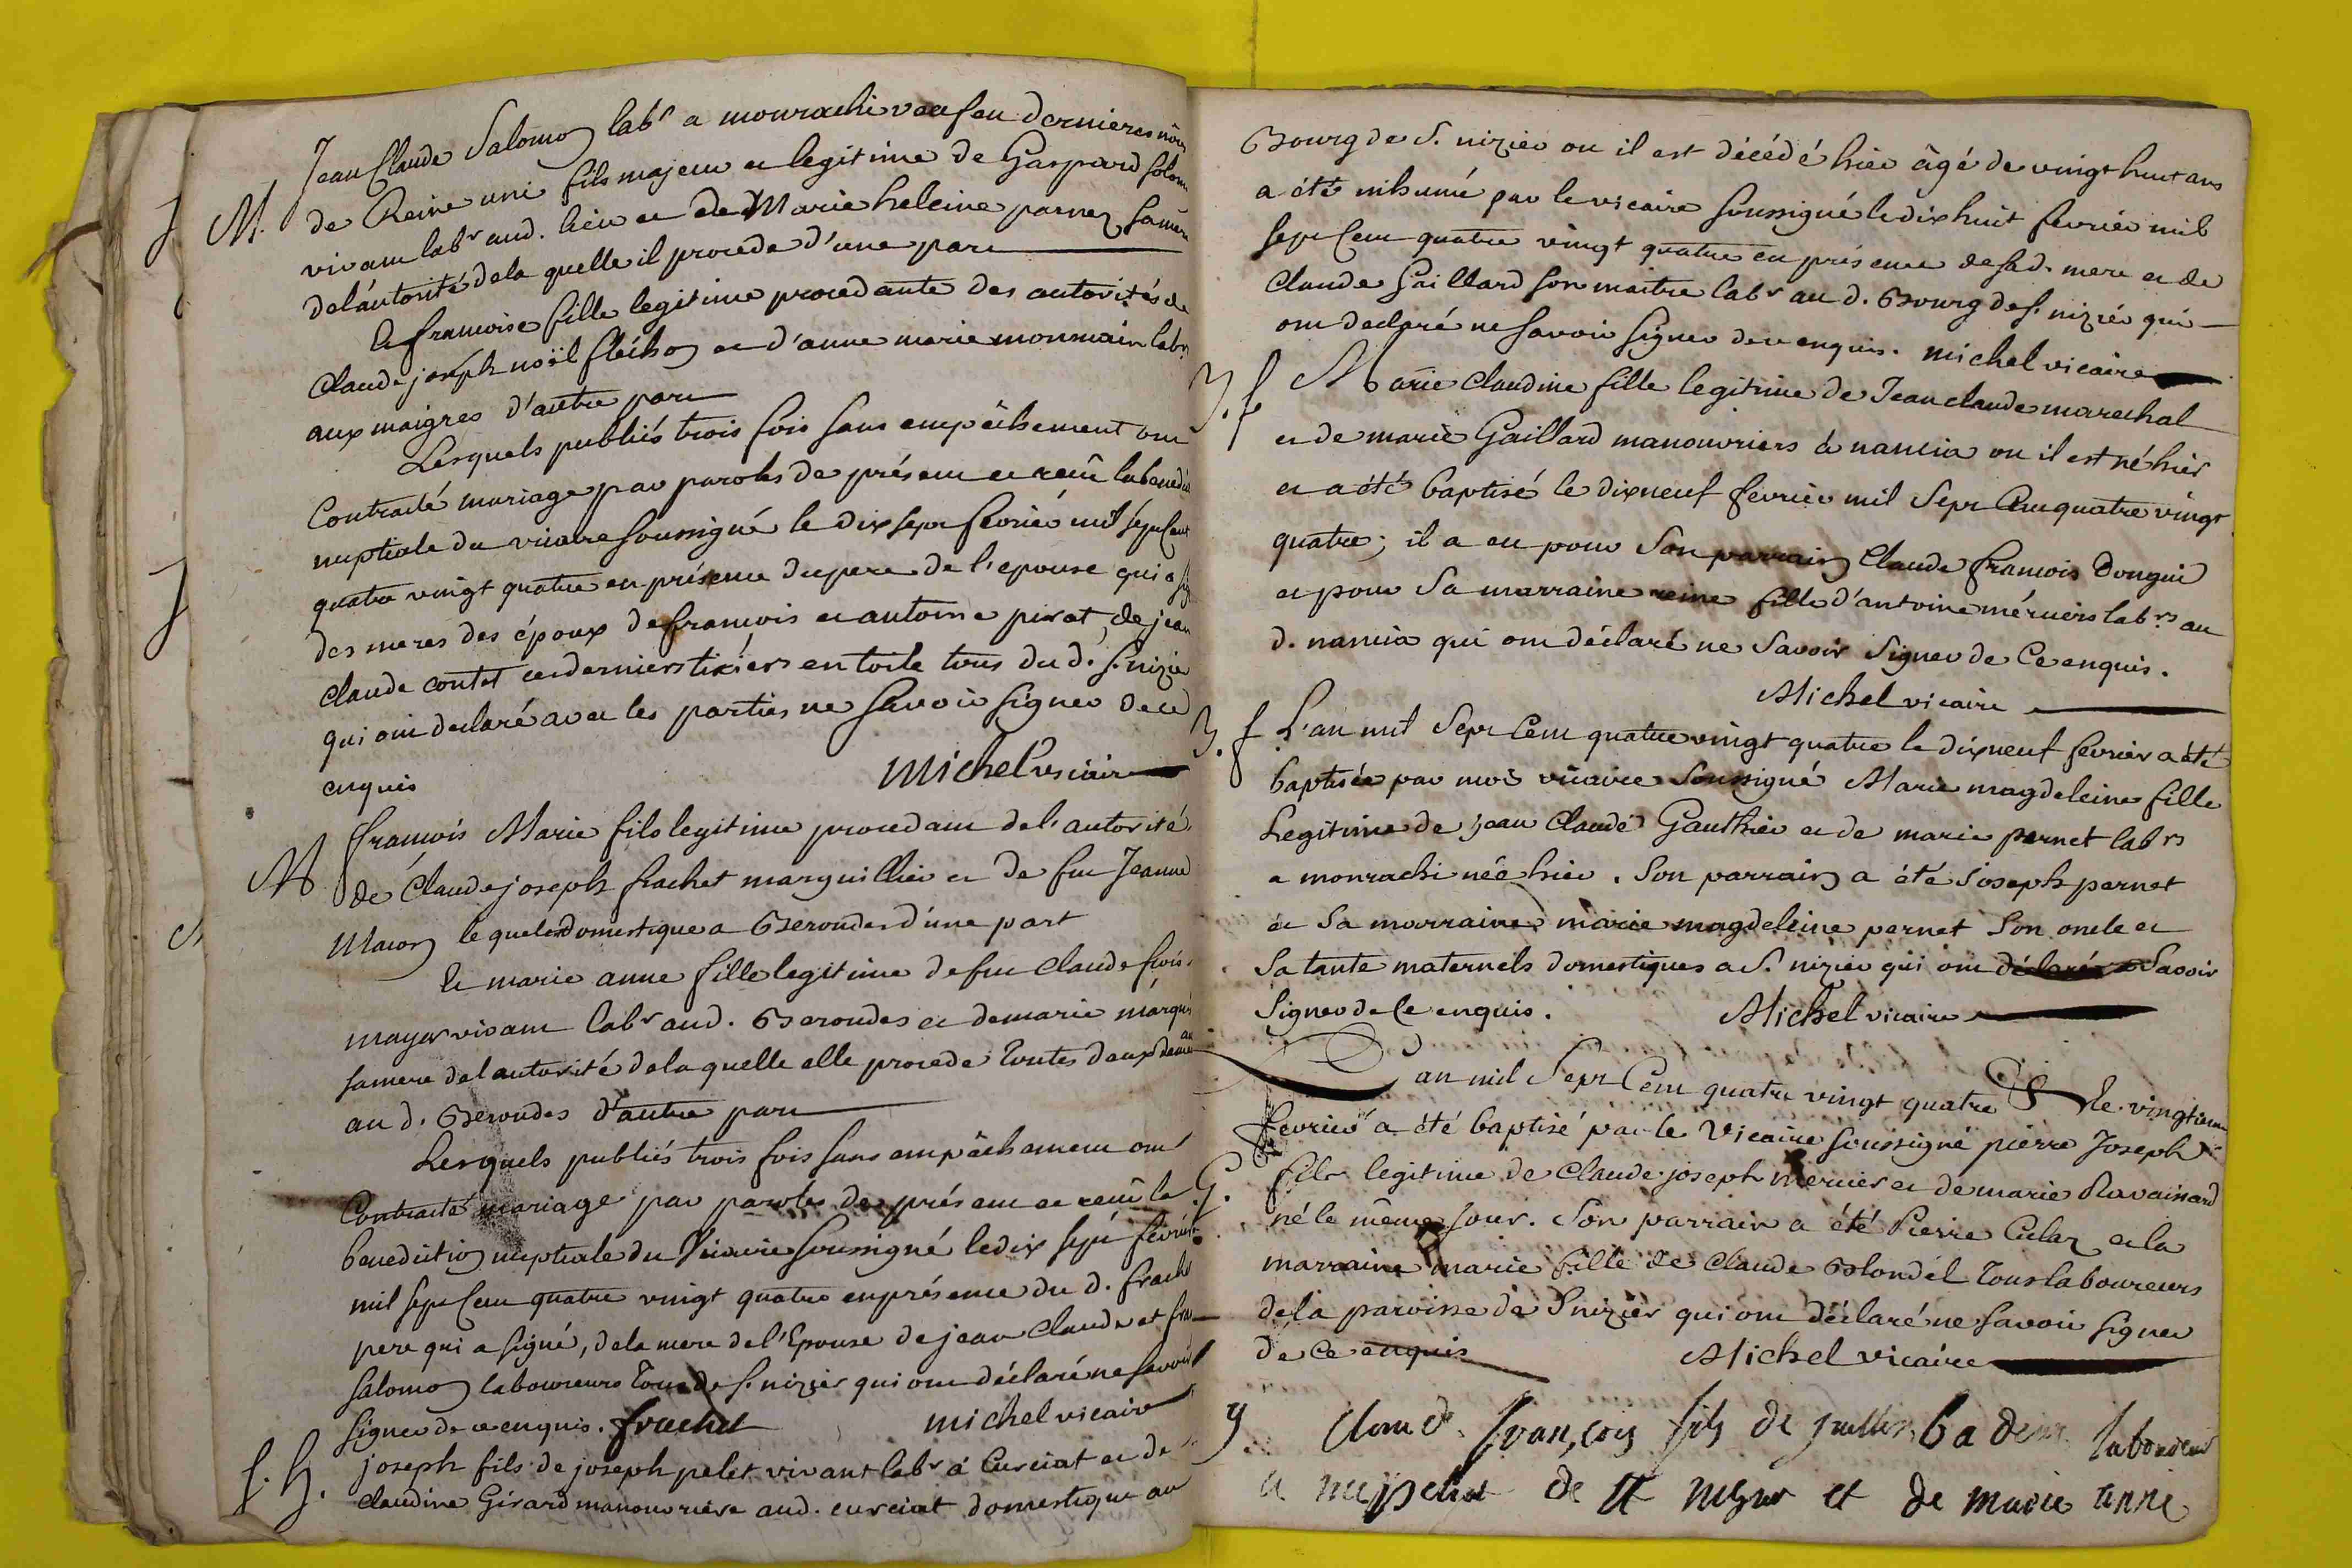 Jean Claude Salomon labr a monrachi veuf en dernieres nôces
M. de Reine uni fils majeur et legitime de Gaspard Solom
vivant labr aud. lieu et de Marie heleine pernez sa mere
de l'autorité de la quelle il procede d'une part
Et francoise fille legitime procedante des autorités de
Claude joseph noël flêchon et d'anne marie monmain labrs
aux maigres d'autre part
Lesquels publiés trois fois sans empêchement ont
Contracté mariage par paroles de présent et reçu la bened
nuptiale du vicaire soussigné le dix sept fevrier mil sept cent
quatre vingt quatre en présence du pere de l'epouse qui a
des meres des époux de francois et antoine pirat, de jean
Claude contet ces derniers tixiers en toile tous du d. s. nizie
qui ont declaré avec les parties ne savoir signer de ce
enquis Michel vicaire
M francois Marie fils legitime procedant de l'autorité
de Claude joseph frachet marguillier et de fue Jeanne
Maron lequel domestique a Beroudes d'une part
Et marie anne fille legitime de fue Claude frois
mayer vivant labr aud. Beroudes et de marie marqui
sa mere de l'autorité de la quelle elle procede toutes deux
au d. Beroudes d'autre part
Lesquels publiés trois fois sans empêchement ont
Contracté mariage par paroles de présent et reçu la
benediction nuptiale du Vicaire soussigné le dix sept février
mil sept cent quatre vingt quatre en présence du d. frach
pere qui a signé, de la mere de l'Epouse de jean Claude et fra
Salomon laboureurs tous de s. nizier qui ont déclaré ne savoir
signer de ce enquis. frachet michel vicaire
f. h. joseph fils de joseph pelet vivant labr à Curciat et de
claudine Girard manouvriere aud. curciat domestique au
Bourg de S. nizier ou il est décédé hier âgé de vingt huit ans
a été inhumé par le vicaire soussigné le dix huit fevrier mil
sept cent quatre vingt quatre en présence de sad. mere et de
Claude Gaillard son maitre labr au d. Bourg de s. nizier qui
ont declaré ne savoir signer de ce enquis. michel vicaire
f Marie Claudine fille legitime de Jean claude marechal
et de marie Gaillard manouvriers à nancia ou il est né hier
et a été baptisé le dixneuf fevrier mil sept Cent quatre vingt
quatre; il a eu pour son parrain Claude francois Donguin
et pour sa marraine reine fille d'antoine méruiers labrs au
d. nancia qui ont déclaré ne savoir signer de Ce enquis.
Michel vicaire
f L'an mil sept Cent quatre vingt quatre le dixneuf fevrier a été
baptisée par moi vicaire soussigné Marie magdeleine fille
Legitime de jean Claude Gauthier et de marie pernet labrs
a monrachi née hier. Son parrain a été joseph pernet
et sa marraine marie magdeleine pernet son oncle et
sa tante maternels domestiques a S. nizier qui ont déclaré savoir
signer de Ce enquis. Michel vicaire
L'an mil sept Cent quatre vingt quatre le vingtieme
fevrier a été baptisé par le Vicaire soussigné pierre Joseph
G. fils legitime de Claude joseph mercier et de marie Ravainard
né le même jour. Son parrain a été Pierre Culaz et la
marraine marie fille de Claude Blondel tous laboureurs
de la paroisse de S nizier qui ont déclaré ne savoir signer
de Ce enquis Michel vicaire
g. Claude francois fils de laboureur
a de et de marie anne